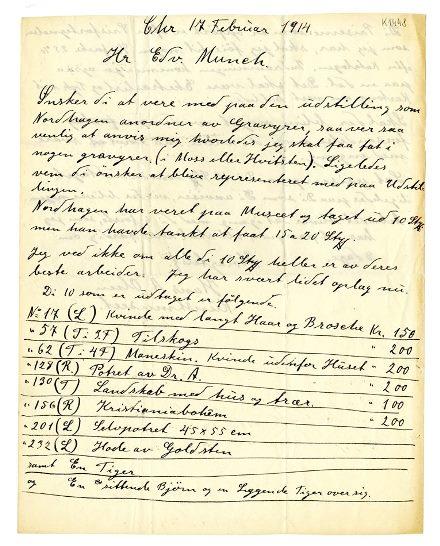 K 1448
Chr 17 Februar 1914
Hr Edv Munch.
Ønsker di at vere med paa den udstilling som
Nordhagen anordner av Gravyrer, saa ver saa
venlig at anvis mig hvorledes jeg skal faa fat i
nogen gravyrer. (i Moss eller Hvitsten). Ligeledes
vem di ønsker at blive representeret med paa Udstil
lingen.
Nordhagen har veret paa Museet og taget ud 10 Sty
men han havde tænkt at faat 15 a 20 Sty
Jeg ved ikke om alle di 10 Sty heller er av deres
beste arbeider. Jeg har svært lidet oplag nu.
Di 10 som er udtaget er følgende.
No 17 (L) Kvinde med langt Haar og Brosche Kr. 150
" 57 (T: 27) Tilskogs " 200
" 62 (T: 47) Maneskin. Kvinde udenfor Huset " 200
" 128 (R) Potret av Dr. A. " 200
" 130 (T) Landskab med hus og trær. " 100
" 156 (R) Kristianiabohem " 200
" 201 (L) Selvpotret 45 x 55 cm
" 232 (L) Hode av Goldsten
samt En Tiger
og En sittende Björn og en Liggende Tiger over sig.